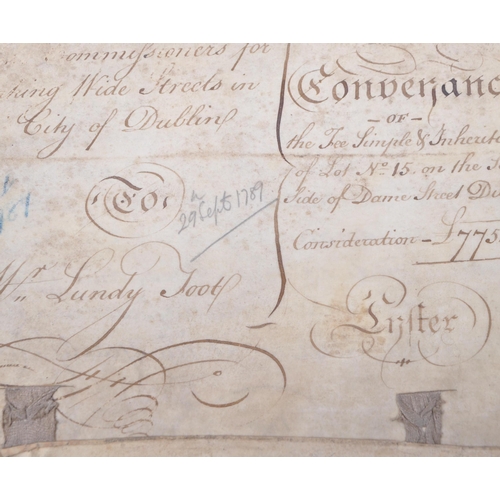 ommissioners for
king Wide Streets in
City of Dublin
To
29 Sept 1789
Mr Lundy Foot
Conveyanc
OF
the Fee Simple & Inherit
of Lot No 15. on the
Side of Dame Street Du
Consideration - £775
Lyster